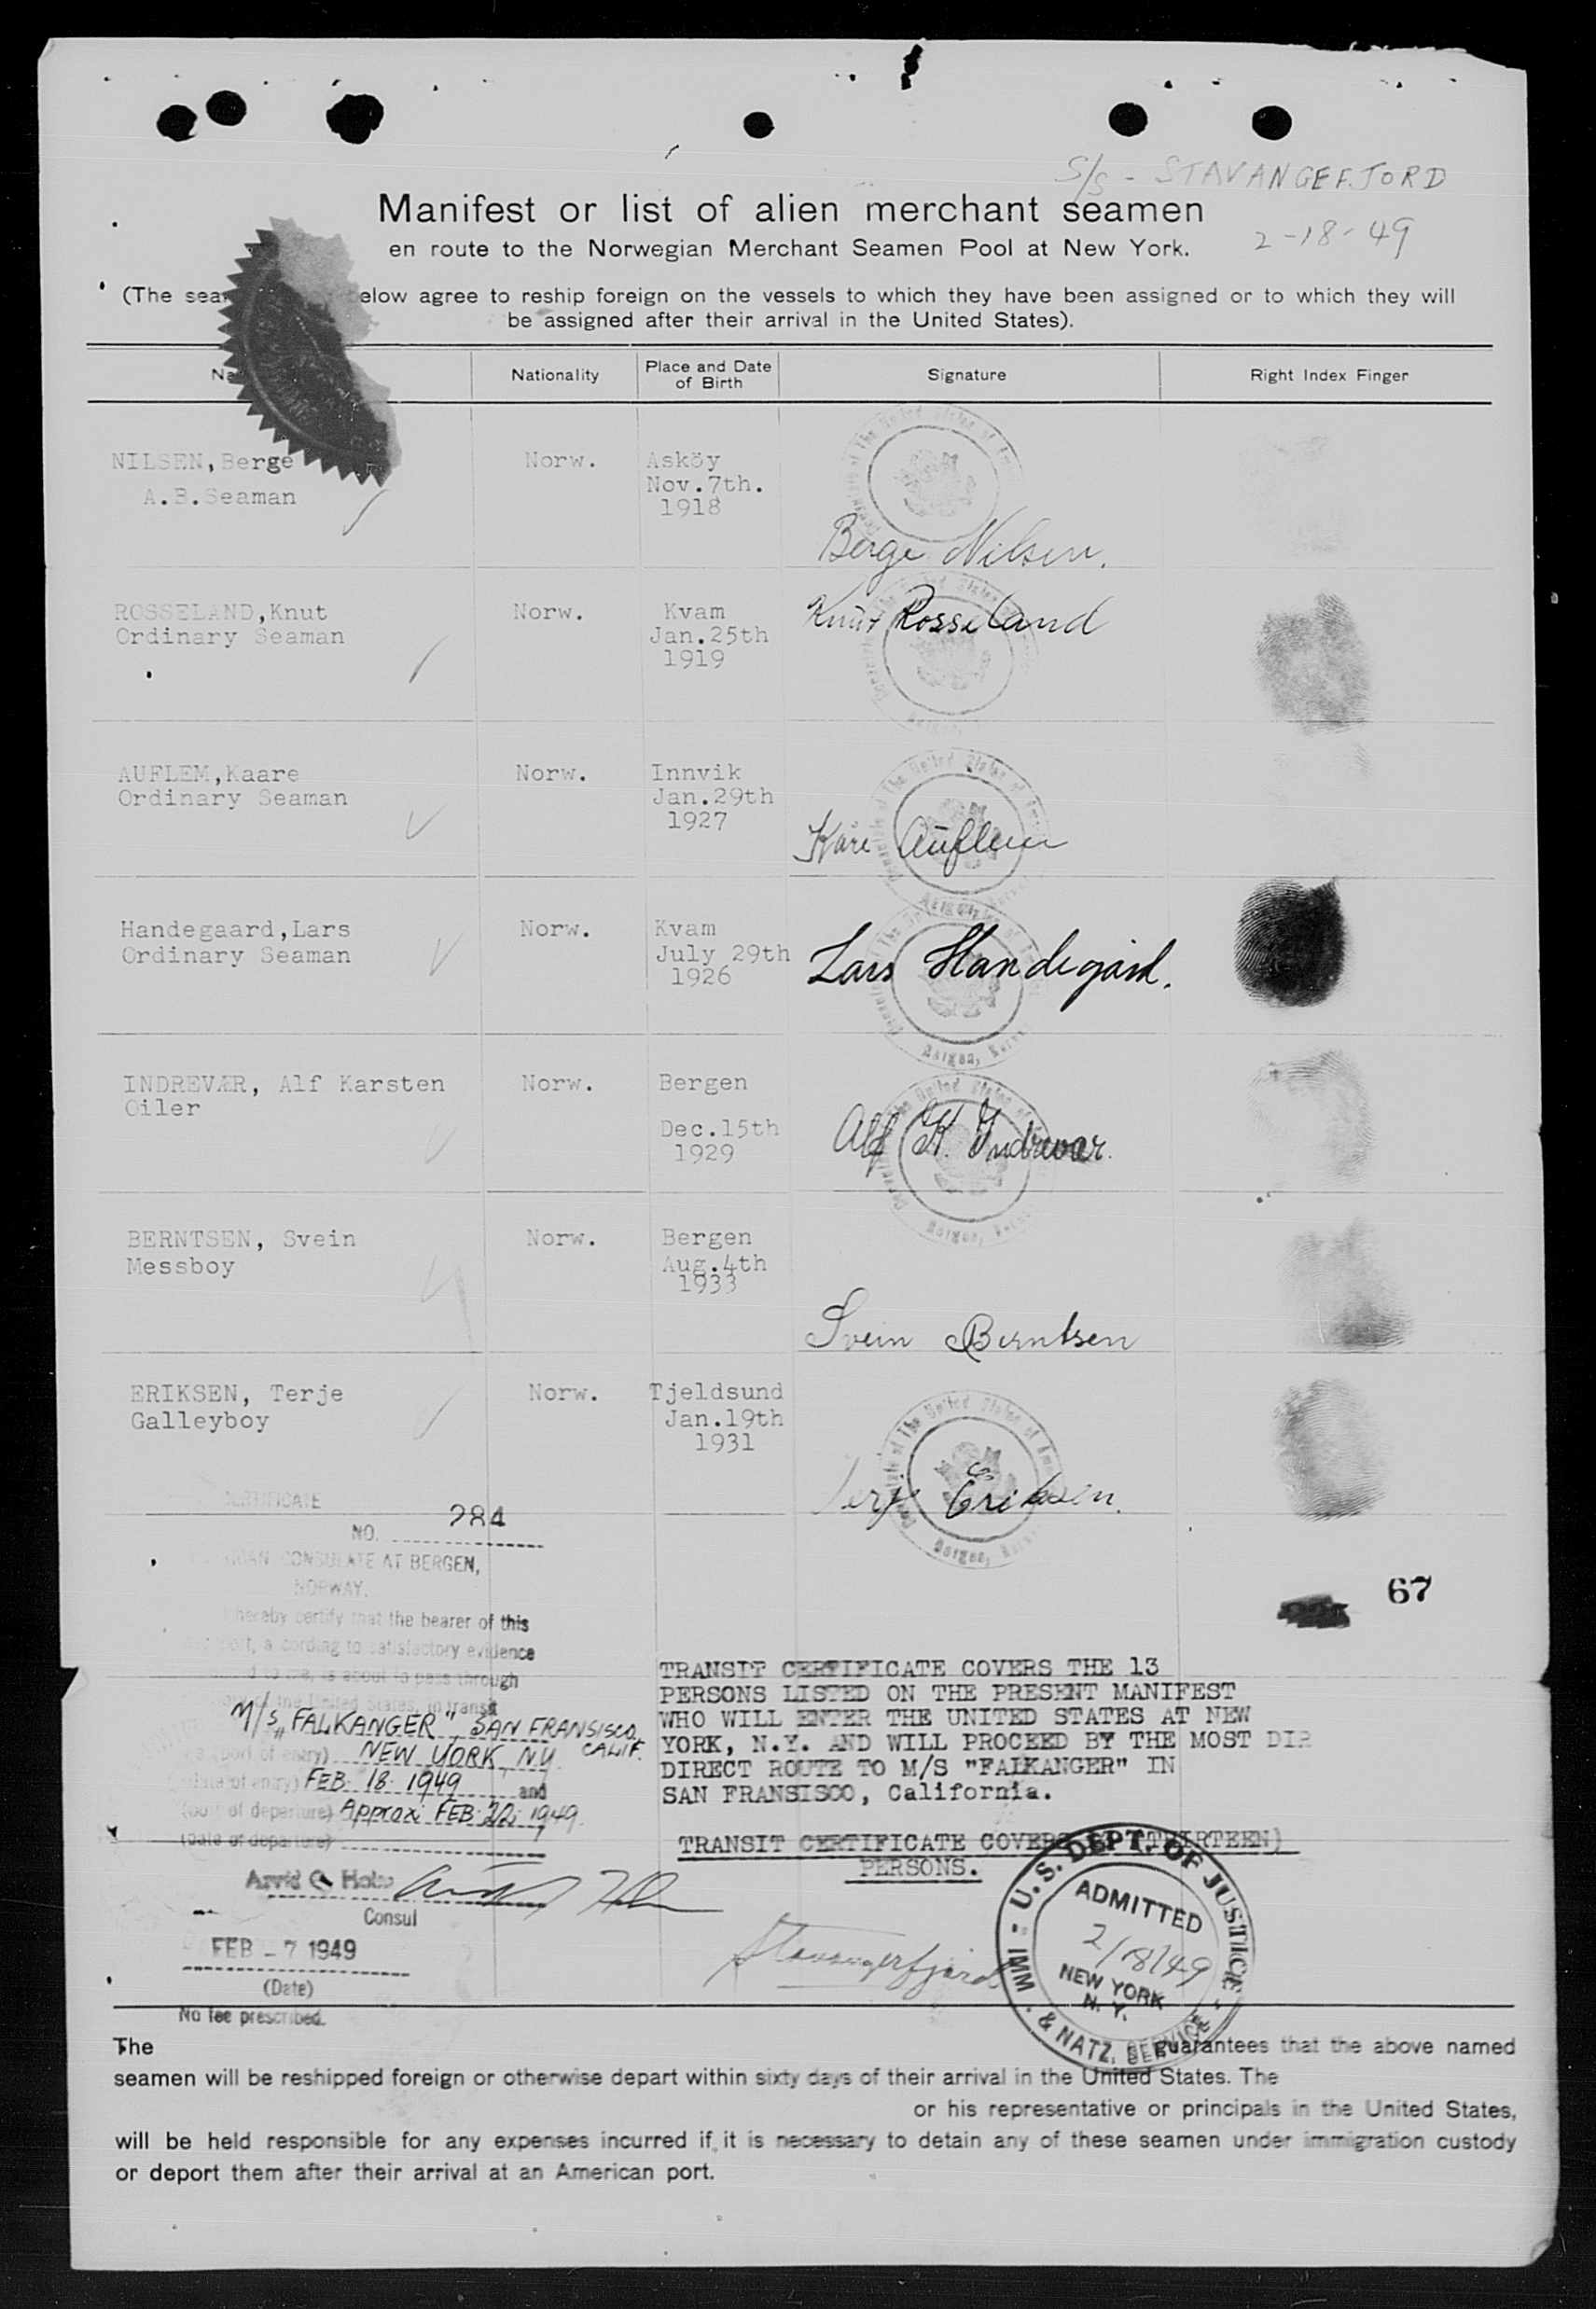 S/S - STAVANGEFJORD
Manifest or list of alien merchant seamen
2-18-49
en route to the Norwegian Merchant Seamen Pool at New York.
(The sea elow agree to reship foreign on the vessels to which they have been assigned or to which they will
be assigned after their arrival in the United States).
Na Nationality Place and Date of Birth Signature Right Index Finger
NILSEN, Berge Norw. Asköy
A.B. Seaman Nov.7th.
1918
Berge Nilsen.
ROSSELAND, Knut Norw. Kvam Knut Rosseland
Ordinary Seaman Jan.25th
1919
AUFLEM, Kaare Norw. Innvik
Ordinary Seaman Jan.29th
1927
Kåre Auflem
Handegaard, Lars Norw. Kvam
Ordinary Seaman July 29th
1926
Lars Handegård.
INDREVÆR, Alf Karsten Norw. Bergen
Oiler
Dec.15th
1929
Alf K. Indrevær.
BERNTSEN, Svein Norw. Bergen
Messboy Aug.4th
1933
Svein Berntsen
ERIKSEN, Terje Norw. Tjeldsund
Galleyboy Jan.19th
1931
Terje Eriksen.
CERTIFICATE
NO. 284
CONSULATE AT BERGEN,
NORWAY.
hereby certify that the bearer of this
cording to satisfactory evidence
to me, is about to pass through
the United States, in transit
M/S "FALKANGER" SAN FRANSISCO, CALIF.
(port of entry) NEW YORK, N.Y.
(date of entry) FEB. 18. 1949 and
(port of departure) Approxi FEB. 22. 1949.
(date of departure)
Arvid G. Holm
Consul
FEB - 7 1949
(Date)
No fee prescribed.
67
TRANSIT CERTIFICATE COVERS THE 13
PERSONS LISTED ON THE PRESENT MANIFEST
WHO WILL ENTER THE UNITED STATES AT NEW
YORK, N.Y. AND WILL PROCEED BY THE MOST DIR
DIRECT ROUTE TO M/S "FALKANGER" IN
SAN FRANSISCO, California.
TRANSIT CERTIFICATE COVERS (THIRTEEN)
PERSONS.
Stavangerfjord
U.S. DEPT. OF JUSTICE
ADMITTED
2/18/49
NEW YORK
N. Y.
IMM. & NATZ. SERVICE
The guarantees that the above named
seamen will be reshipped foreign or otherwise depart within sixty days of their arrival in the United States. The
or his representative or principals in the United States,
will be held responsible for any expenses incurred if it is necessary to detain any of these seamen under immigration custody
or deport them after their arrival at an American port.